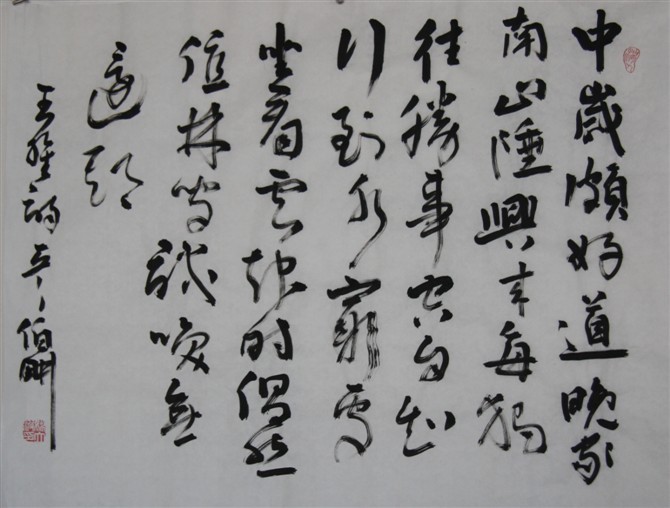 中歲頗好道晚家
南山陲興来每獨
往勝事空自知
行到水窮處
坐看云起时偶然
值林叟談咲無
還期
王維詩伯明